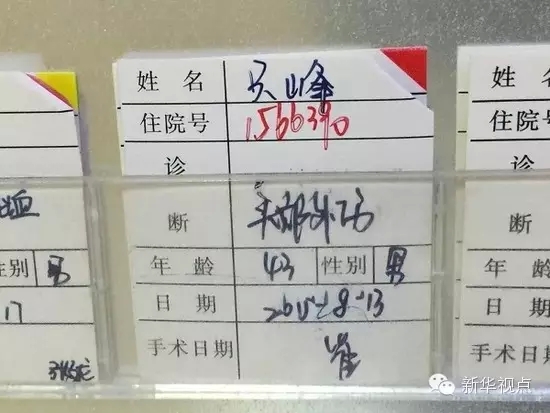 姓 名 山峰
住院号 1566390
诊
断 头部外伤
年 龄 43 性别 男
日 期 2015-8-13
手术日期 崔
血
性别 男
17
姓 名
住院号
诊
断
年 龄
日 期
手术日期
新华视点